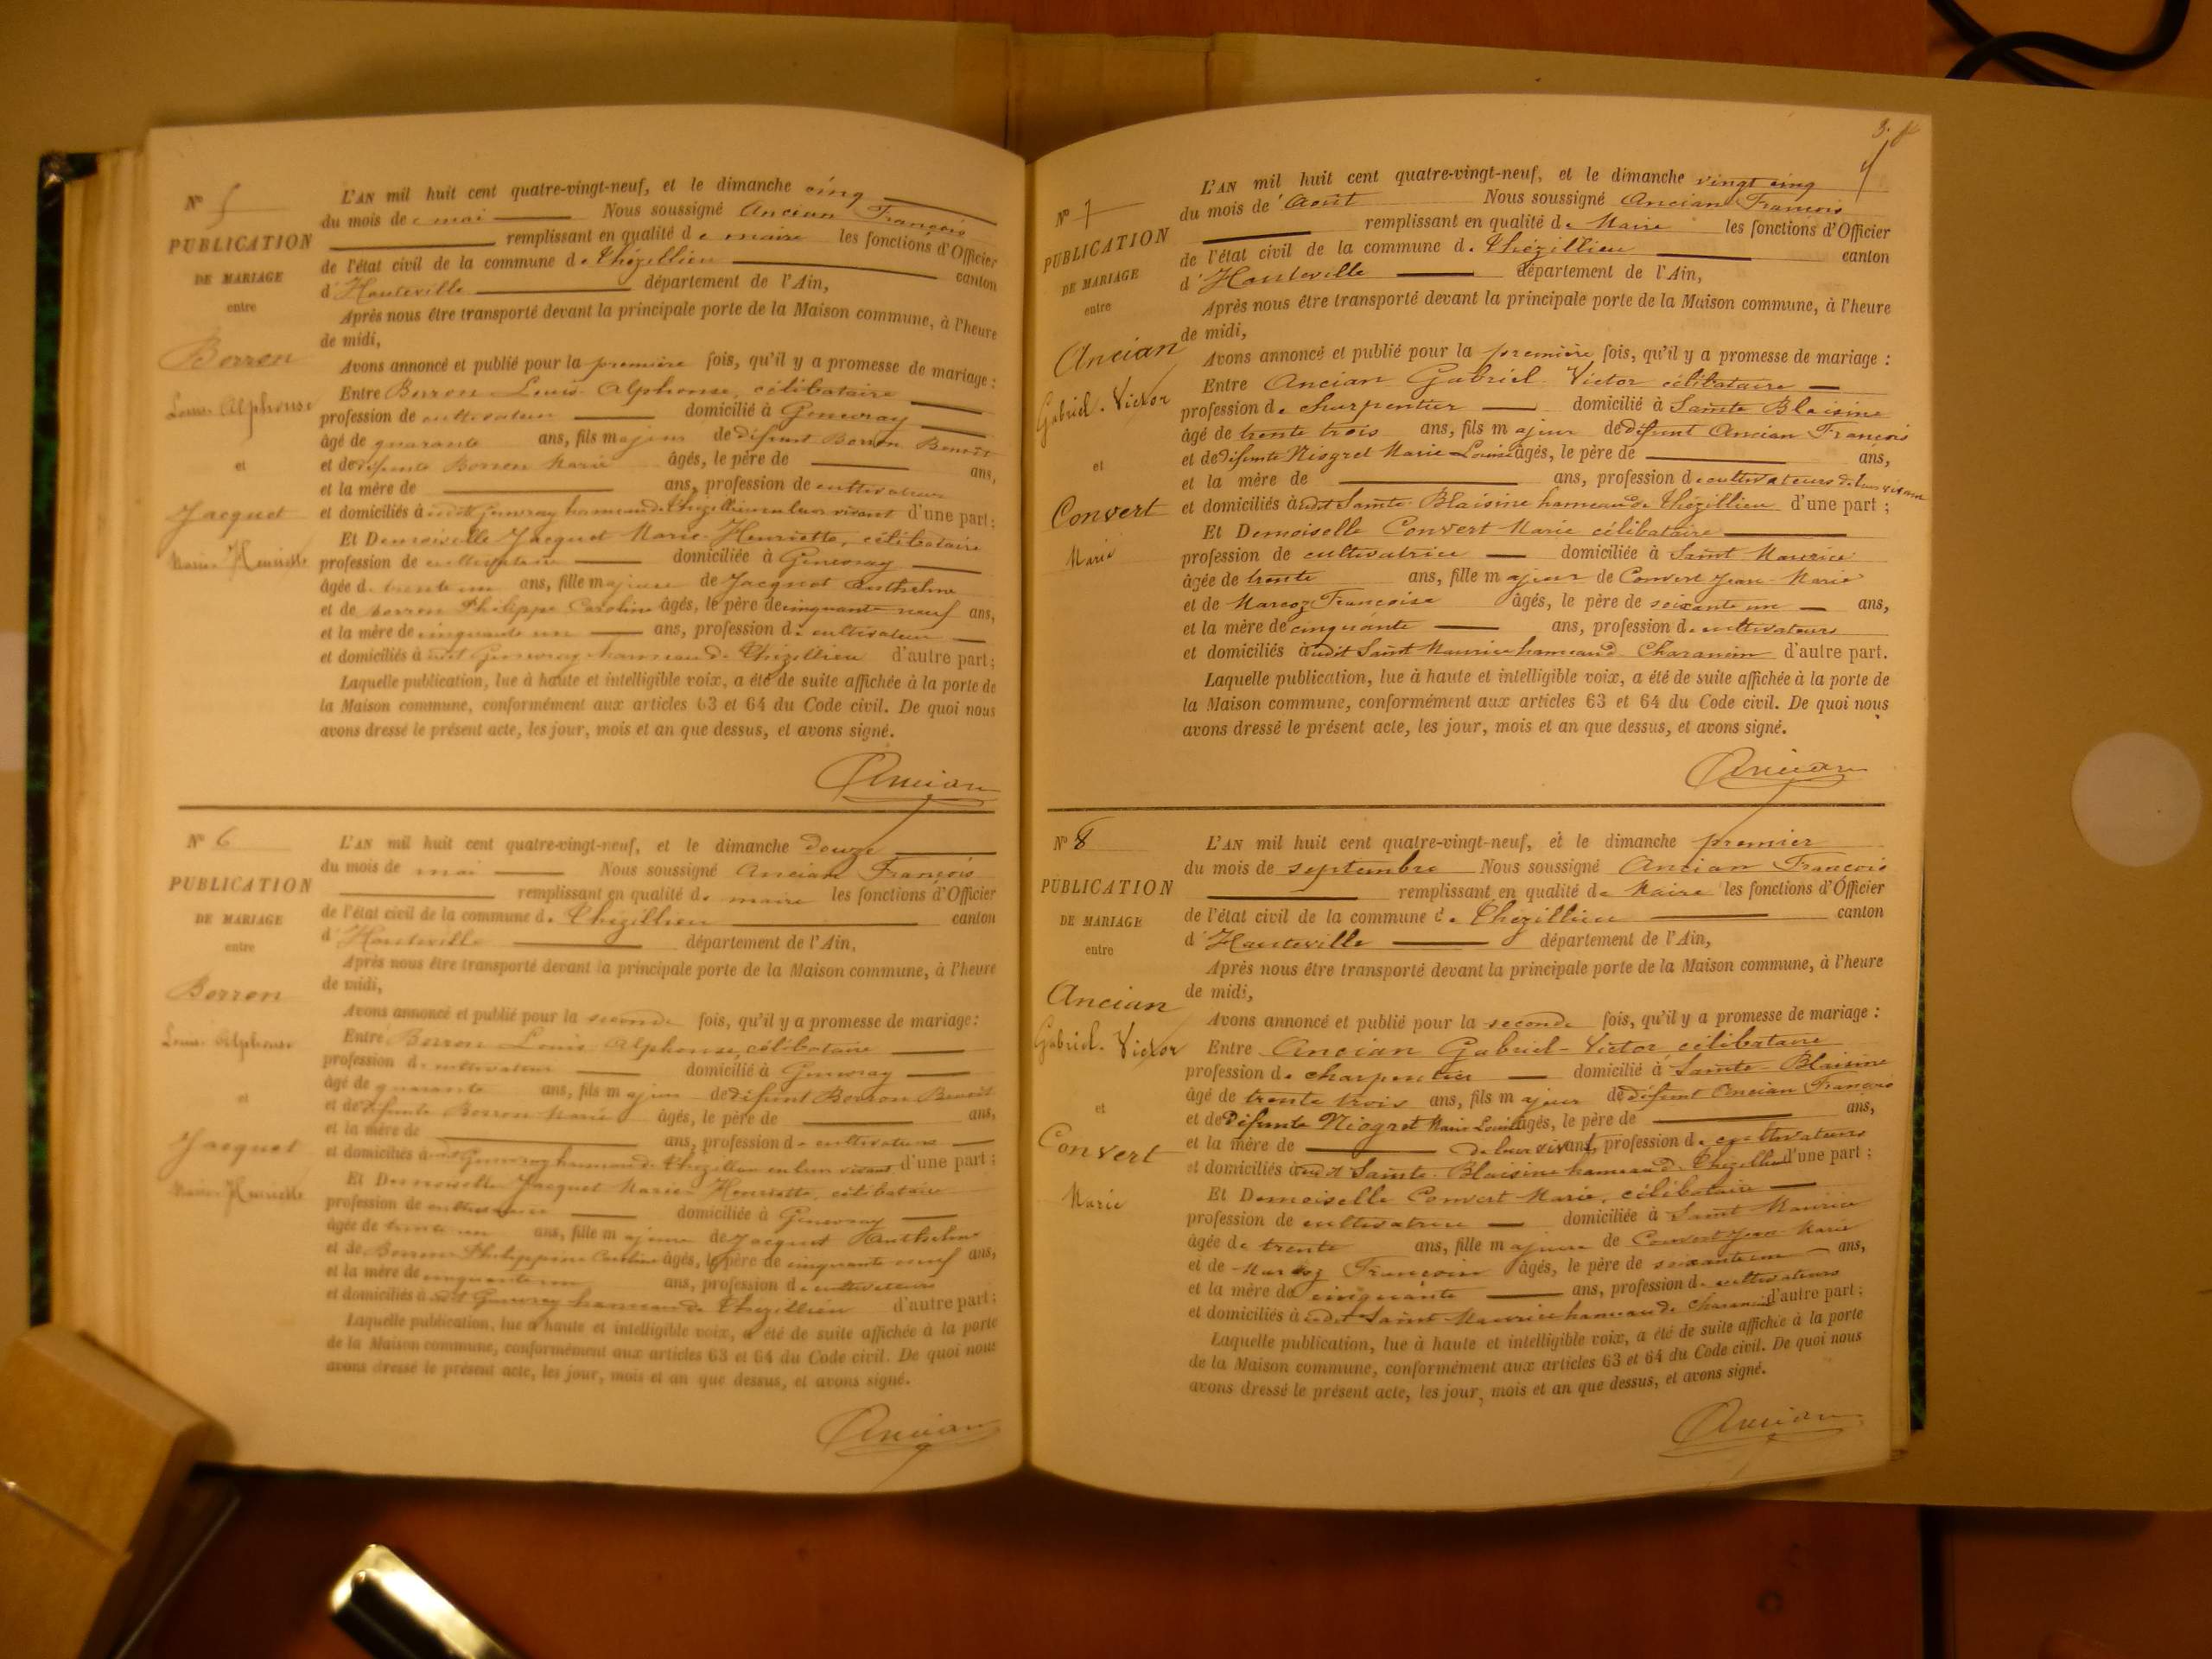 N° 5
PUBLICATION
DE MARIAGE
entre
Borron
Louis Alphonse
et
Jacquet
Marie Henriette
L'AN mil huit cent quatre-vingt-neuf, et le dimanche cinq
du mois de mai Nous soussigné Ancian François
remplissant en qualité de maire les fonctions d'Officier
de l'état civil de la commune de Thézillieu canton
d'Hauteville département de l'Ain,
Après nous être transporté devant la principale porte de la Maison commune, à l'heure
de midi,
Avons annoncé et publié pour la première fois, qu'il y a promesse de mariage :
Entre Borron Louis Alphonse, célibataire
profession de cultivateur domicilié à Genevray
âgé de quarante ans, fils majeur de défunt Borron Benoît
et de défunte Borron Marie âgés, le père de ans,
et la mère de ans, profession de cultivateurs
et domiciliés à udit Genevray hameau de Thézillieu en leur vivant d'une part ;
Et Demoiselle Jacquet Marie Henriette, célibataire
profession de cultivatrice domiciliée à Genevray
âgée de trente un ans, fille majeure de Jacquet Anthelme
et de Borron Philippe Caroline âgés, le père de cinquante neuf ans,
et la mère de cinquante un ans, profession de cultivateurs
et domiciliés à udit Genevray hameau de Thézillieu d'autre part ;
Laquelle publication, lue à haute et intelligible voix, a été de suite affichée à la porte de
la Maison commune, conformément aux articles 63 et 64 du Code civil. De quoi nous
avons dressé le présent acte, les jour, mois et an que dessus, et avons signé.
Ancian
N° 6
PUBLICATION
DE MARIAGE
entre
Borron
Louis Alphonse
et
Jacquet
Marie Henriette
L'AN mil huit cent quatre-vingt-neuf, et le dimanche douze
du mois de mai Nous soussigné Ancian François
remplissant en qualité de maire les fonctions d'Officier
de l'état civil de la commune de Thézillieu canton
d'Hauteville département de l'Ain,
Après nous être transporté devant la principale porte de la Maison commune, à l'heure
de midi,
Avons annoncé et publié pour la seconde fois, qu'il y a promesse de mariage :
Entre Borron Louis Alphonse, célibataire
profession de cultivateur domicilié à Genevray
âgé de quarante ans, fils majeur de défunt Borron Benoît
et de défunte Borron Marie âgés, le père de ans,
et la mère de ans, profession de cultivateurs
et domiciliés à udit Genevray hameau de Thézillieu en leur vivant d'une part ;
Et Demoiselle Jacquet Marie Henriette, célibataire
profession de cultivatrice domiciliée à Genevray
âgée de trente un ans, fille majeure de Jacquet Anthelme
et de Borron Philippine Caroline âgés, le père de cinquante neuf ans,
et la mère de cinquante un ans, profession de cultivateurs
et domiciliés à udit Genevray hameau de Thézillieu d'autre part ;
Laquelle publication, lue à haute et intelligible voix, a été de suite affichée à la porte
de la Maison commune, conformément aux articles 63 et 64 du Code civil. De quoi nous
avons dressé le présent acte, les jour, mois et an que dessus, et avons signé.
Ancian
3.
N° 7
PUBLICATION
DE MARIAGE
entre
Ancian
Gabriel-Victor
et
Convert
Marie
L'AN mil huit cent quatre-vingt-neuf, et le dimanche vingt cinq
du mois d'Août Nous soussigné Ancian François
remplissant en qualité de Maire les fonctions d'Officier
de l'état civil de la commune de Thézillieu canton
d'Hauteville département de l'Ain,
Après nous être transporté devant la principale porte de la Maison commune, à l'heure
de midi,
Avons annoncé et publié pour la première fois, qu'il y a promesse de mariage :
Entre Ancian Gabriel Victor célibataire
profession de charpentier domicilié à Sainte Blaisine
âgé de trente trois ans, fils majeur de défunt Ancian François
et de défunte Niogret Marie Louise âgés, le père de ans,
et la mère de ans, profession de cultivateurs de leur vivant
et domiciliés à udit Sainte Blaisine hameau de Thézillieu d'une part ;
Et Demoiselle Convert Marie célibataire
profession de cultivatrice domiciliée à Saint Maurice
âgée de trente ans, fille majeur de Convert Jean-Marie
et de Marcoz Françoise âgés, le père de soixante un ans,
et la mère de cinquante ans, profession de cultivateurs
et domiciliés à udit Saint Maurice hameau d Charancin d'autre part.
Laquelle publication, lue à haute et intelligible voix, a été de suite affichée à la porte de
la Maison commune, conformément aux articles 63 et 64 du Code civil. De quoi nous
avons dressé le présent acte, les jour, mois et an que dessus, et avons signé.
Ancian
N° 8
PUBLICATION
DE MARIAGE
entre
Ancian
Gabriel-Victor
et
Convert
Marie
L'AN mil huit cent quatre-vingt-neuf, et le dimanche premier
du mois de septembre Nous soussigné Ancian François
remplissant en qualité de Maire les fonctions d'Officier
de l'état civil de la commune de Thézillieu canton
d'Hauteville département de l'Ain,
Après nous être transporté devant la principale porte de la Maison commune, à l'heure
de midi,
Avons annoncé et publié pour la seconde fois, qu'il y a promesse de mariage :
Entre Ancian Gabriel-Victor célibataire
profession de charpentier domicilié à Sainte-Blaisine
âgé de trente trois ans, fils majeur de défunt Ancian François
et de Défunte Niogret Marie Louise âgés, le père de ans,
et la mère de de leur vivant, profession de cultivateurs
et domiciliés à udit Sainte Blaisine hameau de Thézillieu d'une part ;
Et Demoiselle Convert Marie, célibataire
profession de cultivatrice domiciliée à Saint Maurice
âgée de trente ans, fille majeure de Convert Jean Marie
et de Marcoz Françoise âgés, le père de soixante un ans,
et la mère de cinquante ans, profession de cultivateurs
et domiciliés à udit Saint Maurice hameau de Charancin d'autre part ;
Laquelle publication, lue à haute et intelligible voix, a été de suite affichée à la porte
de la Maison commune, conformément aux articles 63 et 64 du Code civil. De quoi nous
avons dressé le présent acte, les jour, mois et an que dessus, et avons signé.
Ancian